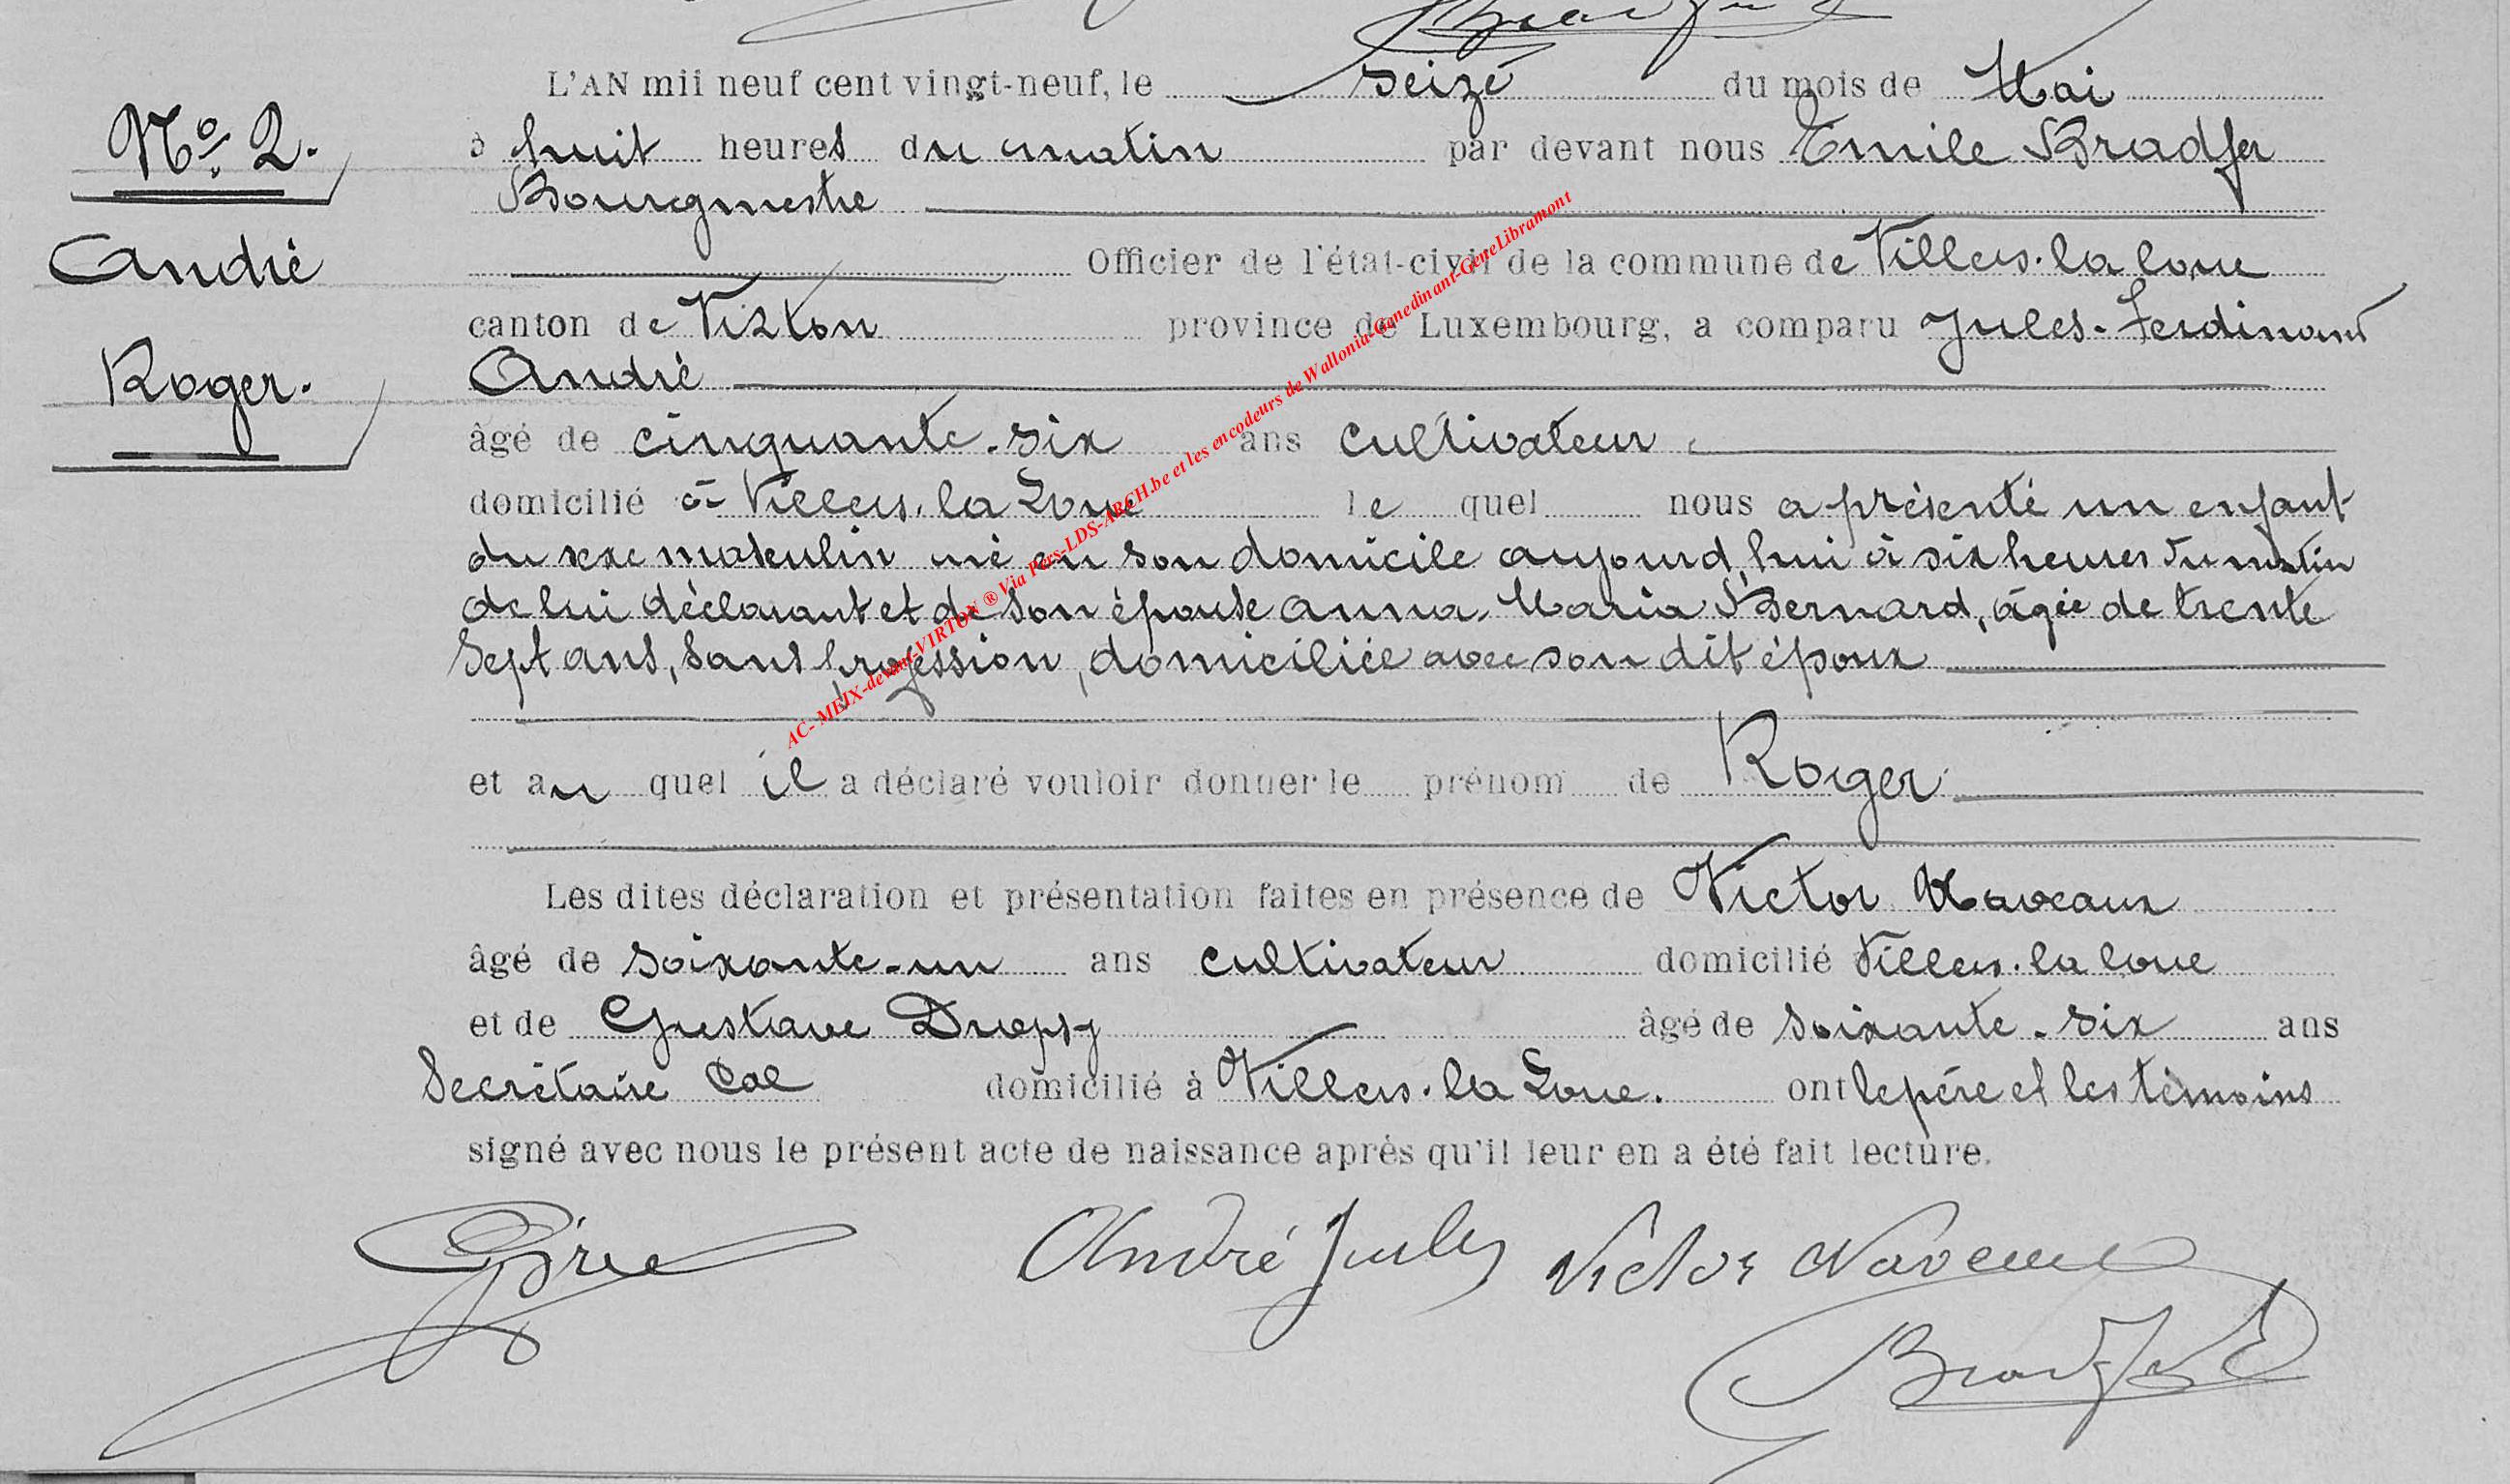 L'AN mil neuf cent vingt-neuf, le seize du mois de Mai
N° 2.
à huit heures du matin par devant nous Emile Bradfer
Bourgmestre
André
Officier de l'état-civil de la commune de Villers-la-loue
canton de Virton province de Luxembourg, a comparu Jules-Ferdinand
Roger.
André
âgé de cinquante-six ans cultivateur
domicilié à Villers-la Loue le quel nous a présenté un enfant
du sexe masculin né en son domicile aujourd'hui à six heures du matin
de lui déclarant et de son épouse Anna-Maria Bernard, âgée de trente
sept ans, sans profession, domiciliée avec son dit époux
et au quel il a déclaré vouloir donner le prénom de Roger
Les dites déclaration et présentation faites en présence de Victor Naveaux
âgé de soixante-un ans cultivateur domicilié Villers-la loue
et de Gustave Dropsy âgé de soixante-six ans
Secrétaire Cal domicilié à Villers-la Loue. ont le père et les témoins
signé avec nous le présent acte de naissance après qu'il leur en a été fait lecture.
André Jules Victor Naveau
Bradfer E
AC-MEIX-devant-VIRTON ® Via Pers-LDS-ARCH.be et les encodeurs de Wallonia-Genedinant-GeneLibramont